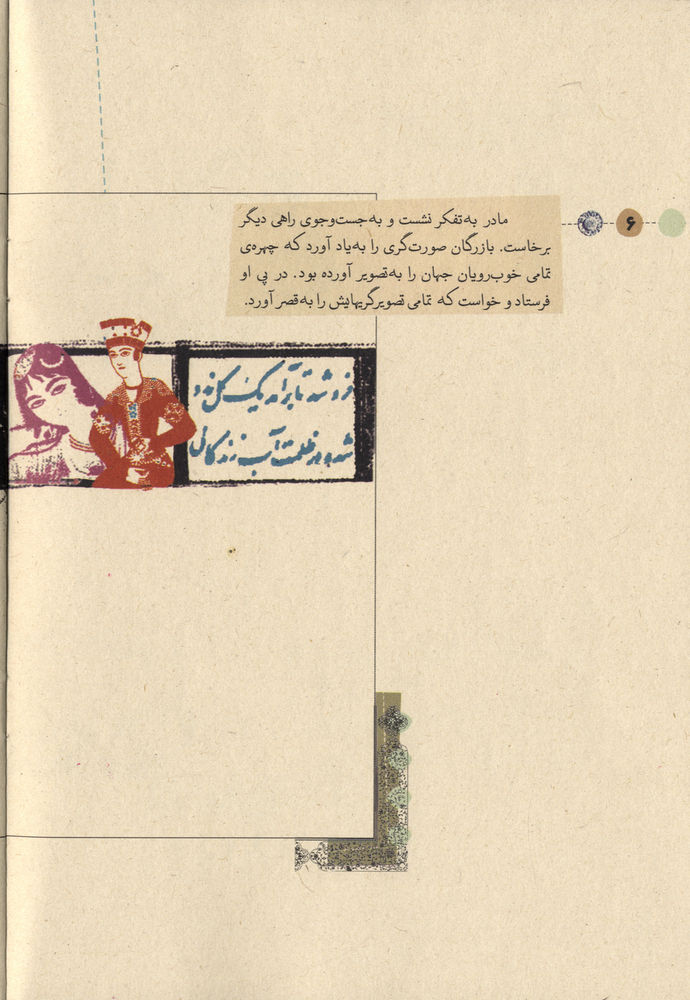 ۶
مادر به‌تفکر نشست و به‌جست‌وجوی راهی دیگر
برخاست. بازرگان صورت‌گری را به‌یاد آورد که چهره‌ی
تمامی خوب‌رویان جهان را به‌تصویر آورده بود. در پی او
فرستاد و خواست که تمامی تصویرگریهایش را به‌قصر آورد.
فروشد تا برآمد یک گل زرد
شد در ظلمت آب زندگانی